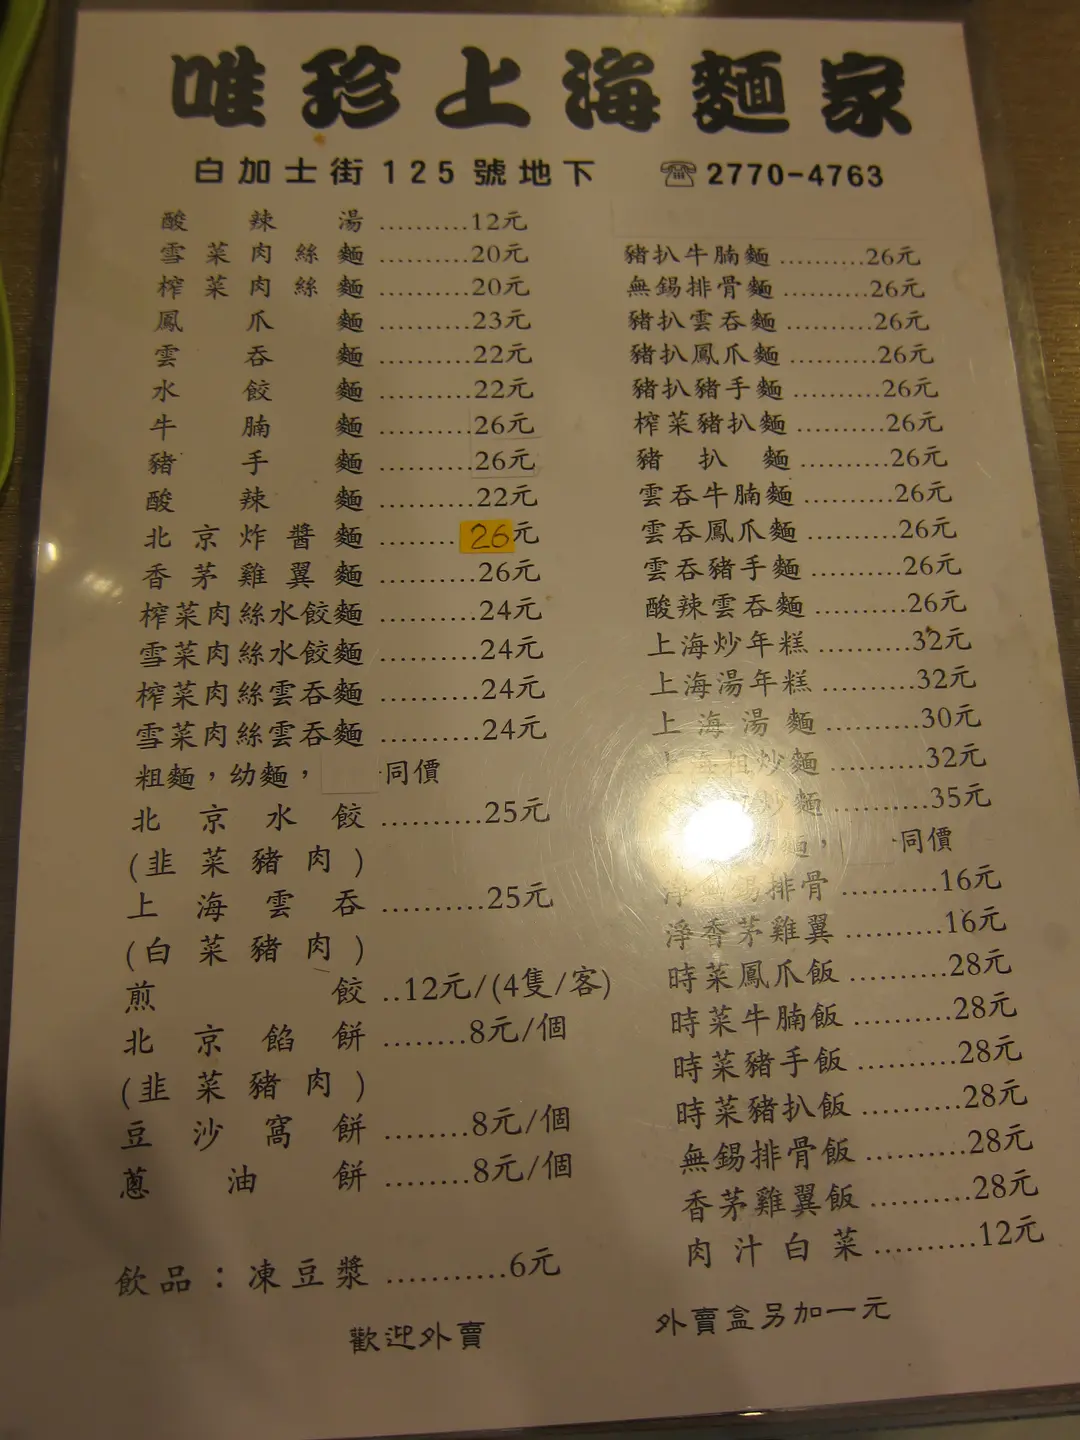 唯珍上海麵家
白加士街125號地下 ☎2770-4763
酸辣湯..........12元
雪菜肉絲麵..........20元
榨菜肉絲麵..........20元
鳳爪麵..........23元
雲吞麵..........22元
水餃麵..........22元
牛腩麵..........26元
豬手麵..........26元
酸辣麵..........22元
北京炸醬麵........26元
香茅雞翼麵..........26元
榨菜肉絲水餃麵..........24元
雪菜肉絲水餃麵..........24元
榨菜肉絲雲吞麵..........24元
雪菜肉絲雲吞麵..........24元
粗麵，幼麵，同價
北京水餃..........25元
(韭菜豬肉)
上海雲吞..........25元
(白菜豬肉)
煎餃..12元/(4隻/客)
北京餡餅........8元/個
(韭菜豬肉)
豆沙窩餅........8元/個
蔥油餅........8元/個
飲品：凍豆漿...........6元
歡迎外賣
豬扒牛腩麵..........26元
無錫排骨麵..........26元
豬扒雲吞麵..........26元
豬扒鳳爪麵..........26元
豬扒豬手麵..........26元
榨菜豬扒麵..........26元
豬扒麵..........26元
雲吞牛腩麵..........26元
雲吞鳳爪麵..........26元
雲吞豬手麵..........26元
酸辣雲吞麵..........26元
上海炒年糕..........32元
上海湯年糕..........32元
上海湯麵..........30元
上海粗炒麵..........32元
炒麵..........35元
幼麵，同價
淨無錫排骨..........16元
淨香茅雞翼..........16元
時菜鳳爪飯..........28元
時菜牛腩飯..........28元
時菜豬手飯..........28元
時菜豬扒飯..........28元
無錫排骨飯..........28元
香茅雞翼飯..........28元
肉汁白菜..........12元
外賣盒另加一元